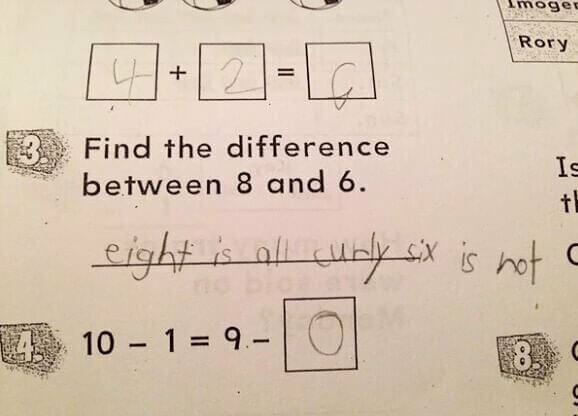 Imogen
Rory
4 + 2 = 6
3. Find the difference
between 8 and 6.
eight is all curly six is not
4. 10 - 1 = 9 - 0
8.